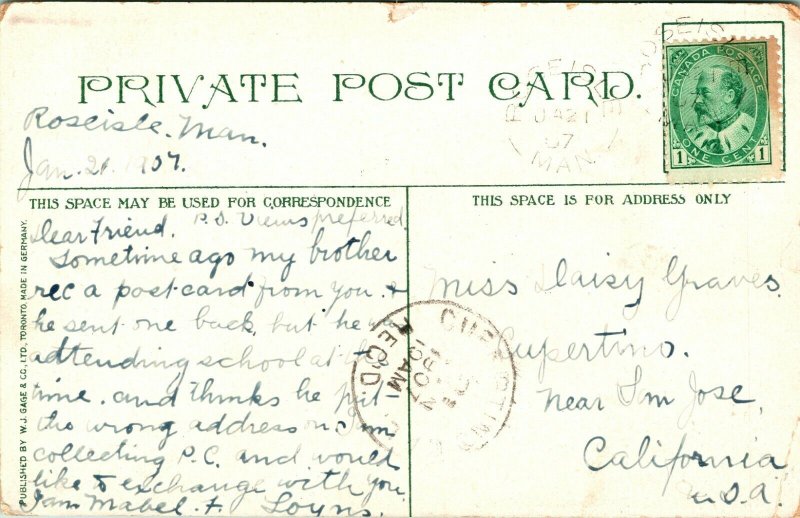 PRIVATE POST CARD.
Roseisle. Man.
Jan. 21 1907.
CANADA POSTAGE
1 ONE CENT 1
ROSEISLE
JA 21
07
MAN.
THIS SPACE MAY BE USED FOR CORRESPONDENCE
P.S. Views preferred
Dear Friend.
Sometime ago my brother
rec a post card from you. &
he sent one back, but he was
attending school at the
time. and thinks he put
the wrong address on. I'm
collecting P.C. and would
like to exchange with you
I am Mabel. F. Loyns.
THIS SPACE IS FOR ADDRESS ONLY
Miss Daisy Graves.
Cupertino.
near San Jose,
California
U.S.A.
REC'D
AM
PUBLISHED BY W.J. GAGE & CO., LTD., TORONTO. MADE IN GERMANY.